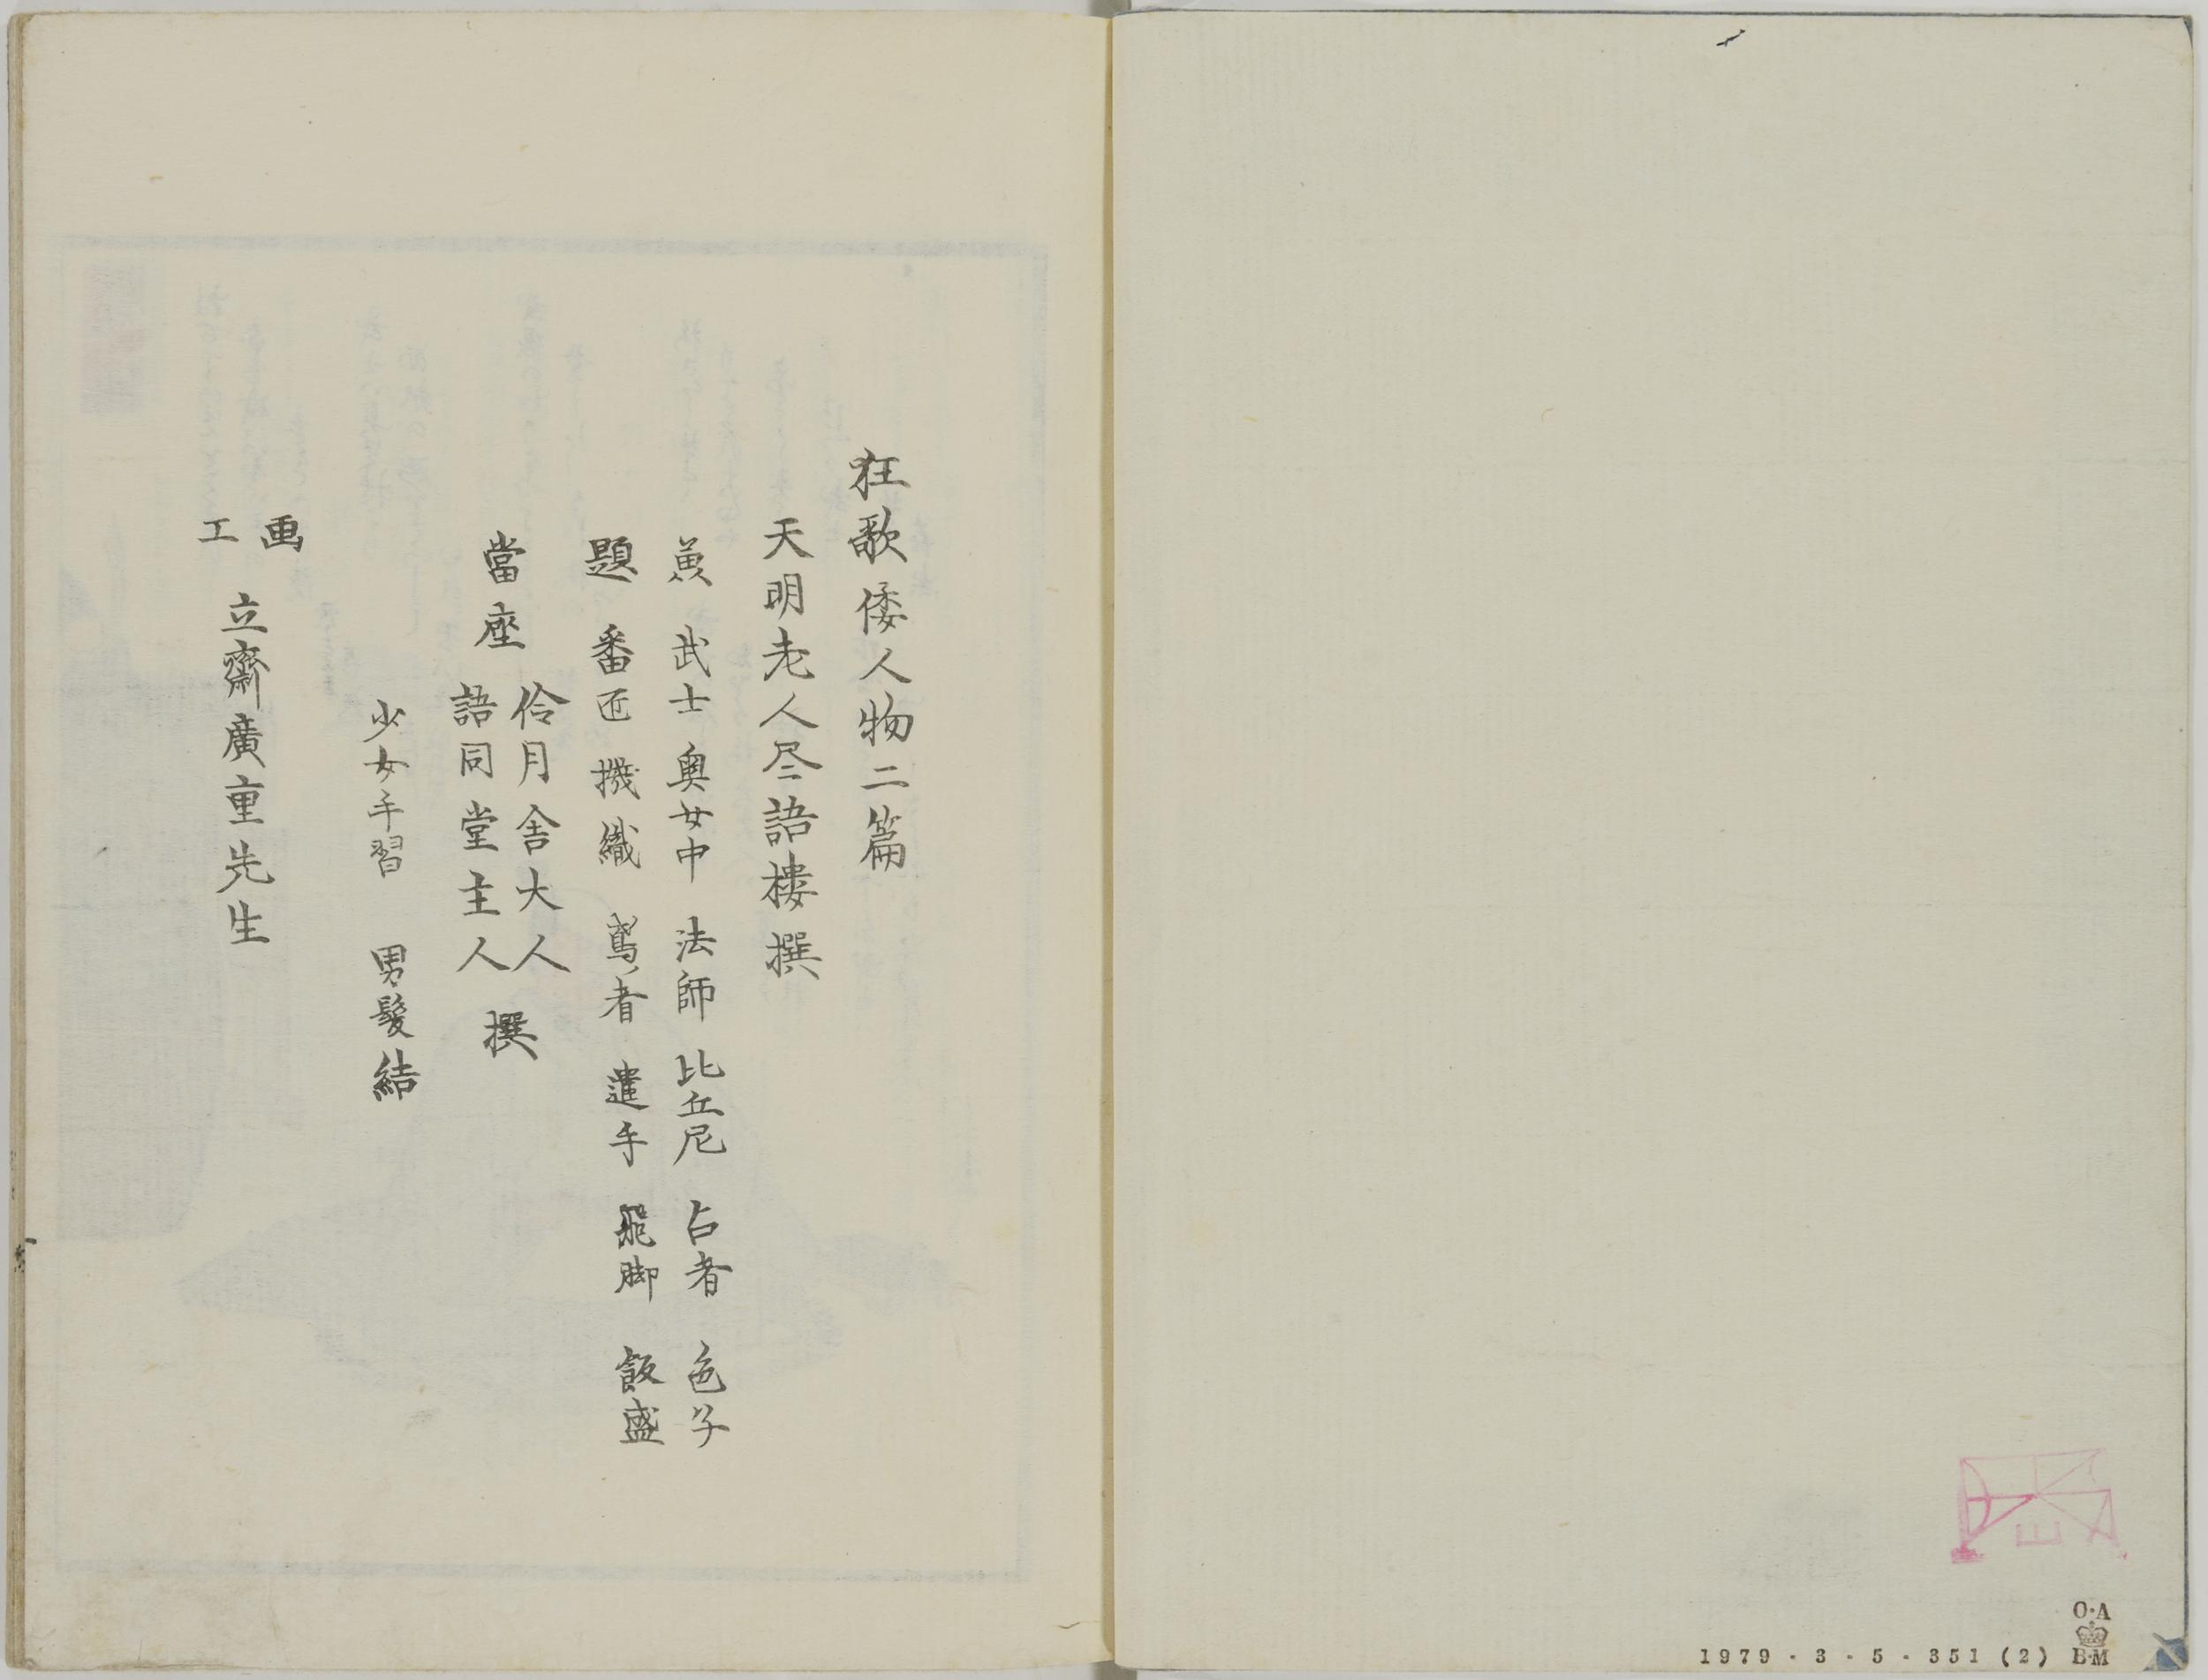 狂歌倭人物二篇
天明老人尽語樓撰
兼 武士 奥女中 法師 比丘尼 占者 色子
題 番匠 機織 鳶者 遣手 飛脚 飯盛
當座 伶月舎大人
語同堂主人 撰
少女手習 男髪結
画工 立齋廣重先生
O·A
B·M
1979-3-5-351(2)